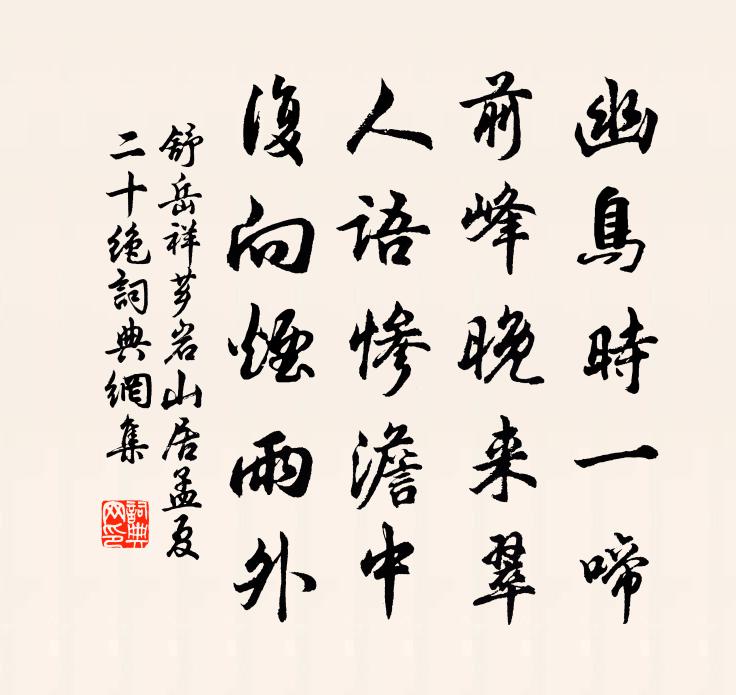 幽鳥時一啼
前峰晚来翠
人語惨澹中
復向煙雨外
舒岳祥芗岩山居孟夏
二十绝詞典網集
詞典
网印